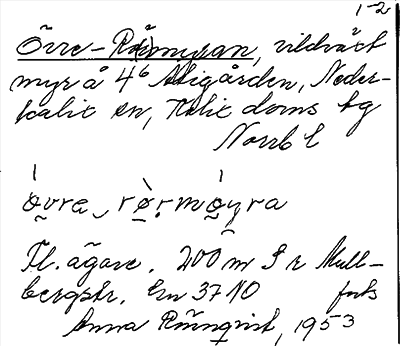 1-2
Övre-Rå(r)myran, vildväxt
myr å 4⁶ Altgården, Neder-
kalix en, Kalix doms tg
Norrb l
övre rørmøyra
Fl. ägare. 200 m S r Mull-
bergstr. En 37 NO
Anna Rönnqvist, 1953